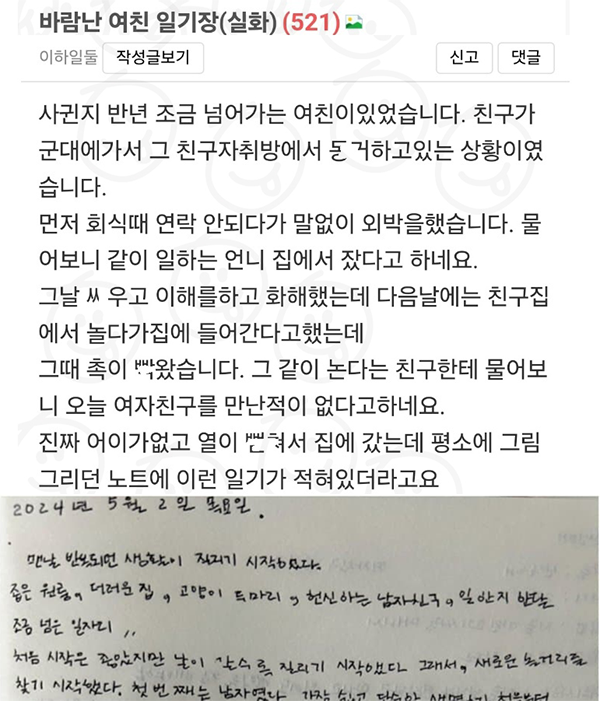 바람난 여친 일기장(실화) (521)
이하일둘 작성글보기 신고 댓글
사귄지 반년 조금 넘어가는 여친이있었습니다. 친구가
군대에가서 그 친구자취방에서 동거하고있는 상황이였
습니다.
먼저 회식때 연락 안되다가 말없이 외박을했습니다. 물
어보니 같이 일하는 언니 집에서 잤다고 하네요.
그날 싸우고 이해를하고 화해했는데 다음날에는 친구집
에서 놀다가집에 들어간다고했는데
그때 촉이 빡왔습니다. 그 같이 논다는 친구한테 물어보
니 오늘 여자친구를 만난적이 없다고하네요.
진짜 어이가없고 열이 뻗쳐서 집에 갔는데 평소에 그림
그리던 노트에 이런 일기가 적혀있더라고요
2024년 5월 2일 목요일.
만날 반복되던 생활이 질리기 시작했다.
좁은 원룸, 더러운 집, 고양이 두마리, 헌신하는 남자친구, 일한지 한달
조금 넘은 일자리,,
처음 시작은 좋았지만 날이 갈수록 질리기 시작했다. 그래서, 새로운 놀거리를
찾기 시작했다. 첫 번째는 남자였다.